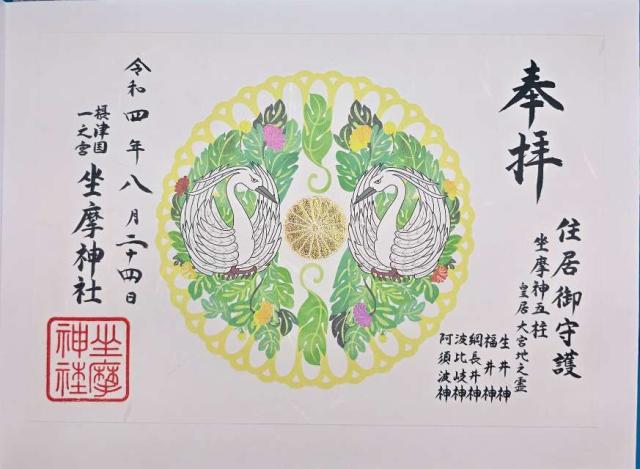 奉拝
住居御守護
坐摩神五柱
皇居大宮地之霊
生井神
福井神
綱長井神
波比岐神
阿須波神
令和四年八月二十四日
摂津国
一之宮
坐摩神社
坐摩
神社